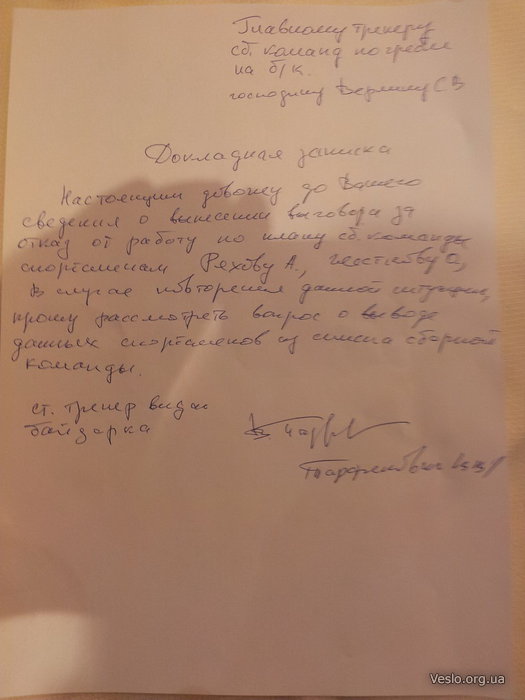 Главному тренеру
сб. команд по гребле
на б/к.
господину
Докладная записка
Настоящим довожу до Вашего
сведения о вынесении выговора за
отказ от работу по плану сб. команды
спортсменам Ряхову А.,
В случае повторения данной ситуации,
прошу рассмотреть вопрос о выводе
данных спортсменов из списка сборной
команды.
ст. тренер вида
байдарка
Veslo.org.ua